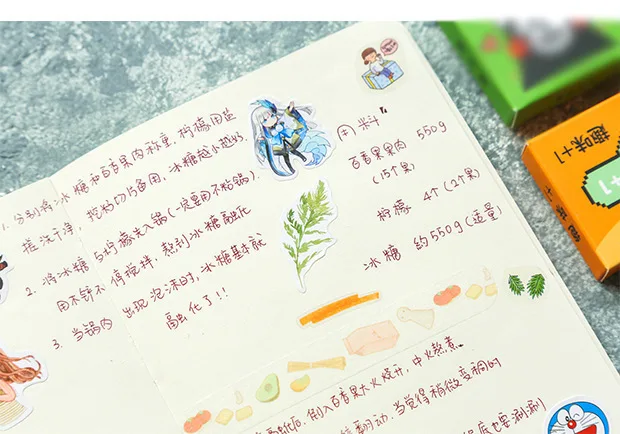 1. 分别将冰糖和百香果肉称重,柠檬用盐
搓洗干净,挖籽切片备用,冰糖越小越好
2. 将冰糖与柠檬先入锅(一定要用不粘锅),
用不锈不停搅拌,熬到冰糖融化
3. 当锅内出现泡沫时,冰糖基本就
融化了!!
用料
百香果果肉 550g
(15个果)
柠檬 4个(2个果)
冰糖 约550g(适量)
倒入百香果大火烧开,中火熬煮
翻动,当觉得稍微变稠的
底也要涮涮
趣味+1
+1